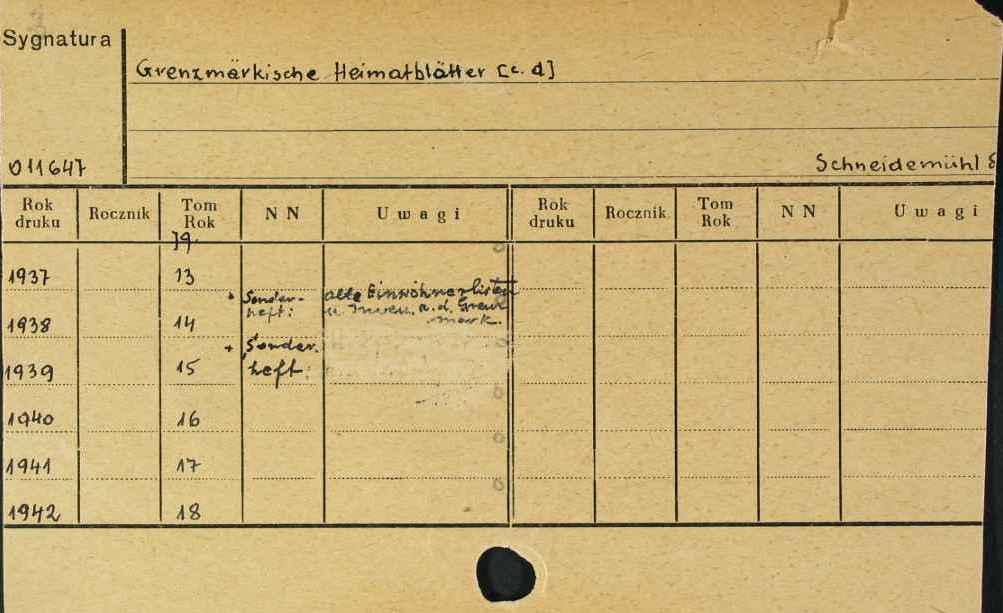 Sygnatura
Grenzmärkische Heimatblätter [c. d]
011647
Schneidemühl
Rok druku Rocznik Tom Rok NN Uwagi Rok druku Rocznik Tom Rok NN Uwagi
Jg.
1937 13
+ Sonder- alte Einwohnerlisten
heft: u. a.d. Grenz
1938 14 mark.
+ Sonder.
1939 15 heft:
1940 16
1941 17
1942 18